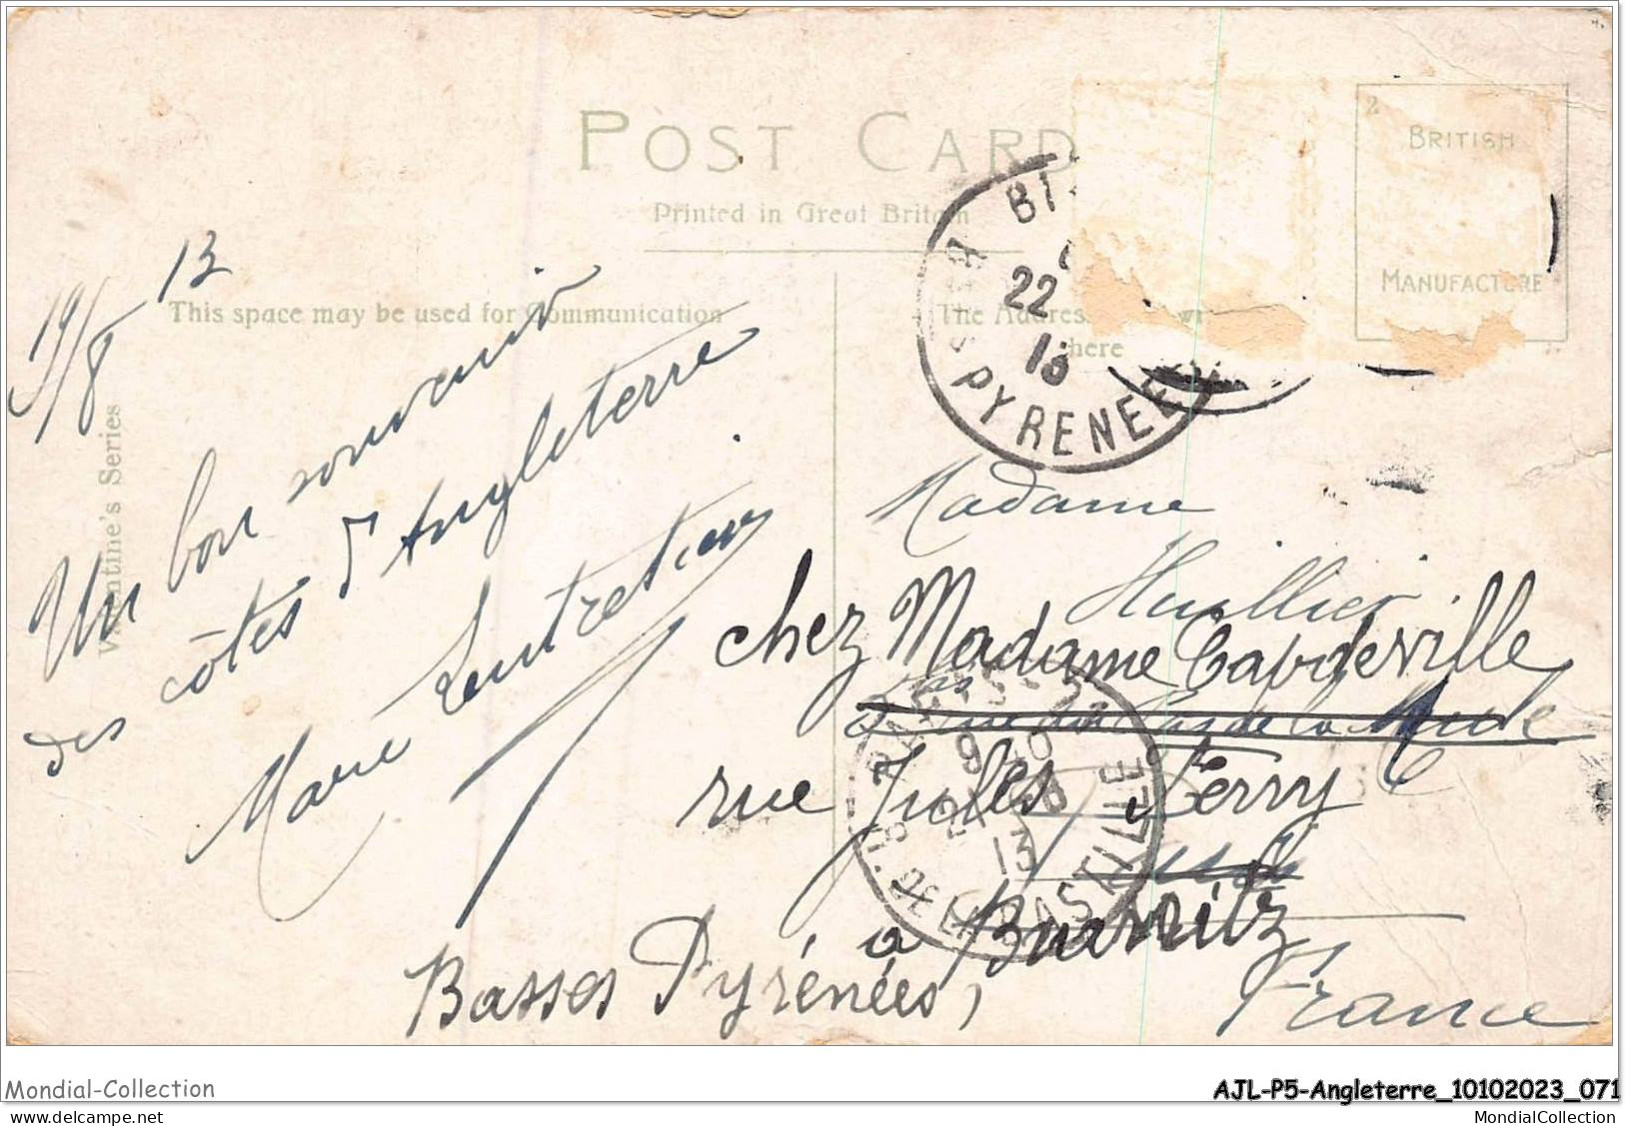 POST CARD
Printed in Great Britain
BRITISH
MANUFACTURE
This space may be used for Communication
The Address
here
Valentine's Series
19/8 13
Un bon souvenir
des côtes d'Angleterre
Marie
BI
22
13
PYRENEES
Madame
Huillier
chez Madame Capdeville
rue Jules Ferry
à Biarritz
Basses Pyrénées,
France
PARIS
13
R. DE LA BASTILLE
Mondial-Collection
AJL-P5-Angleterre_10102023_071
MondialCollection
MondialCollection